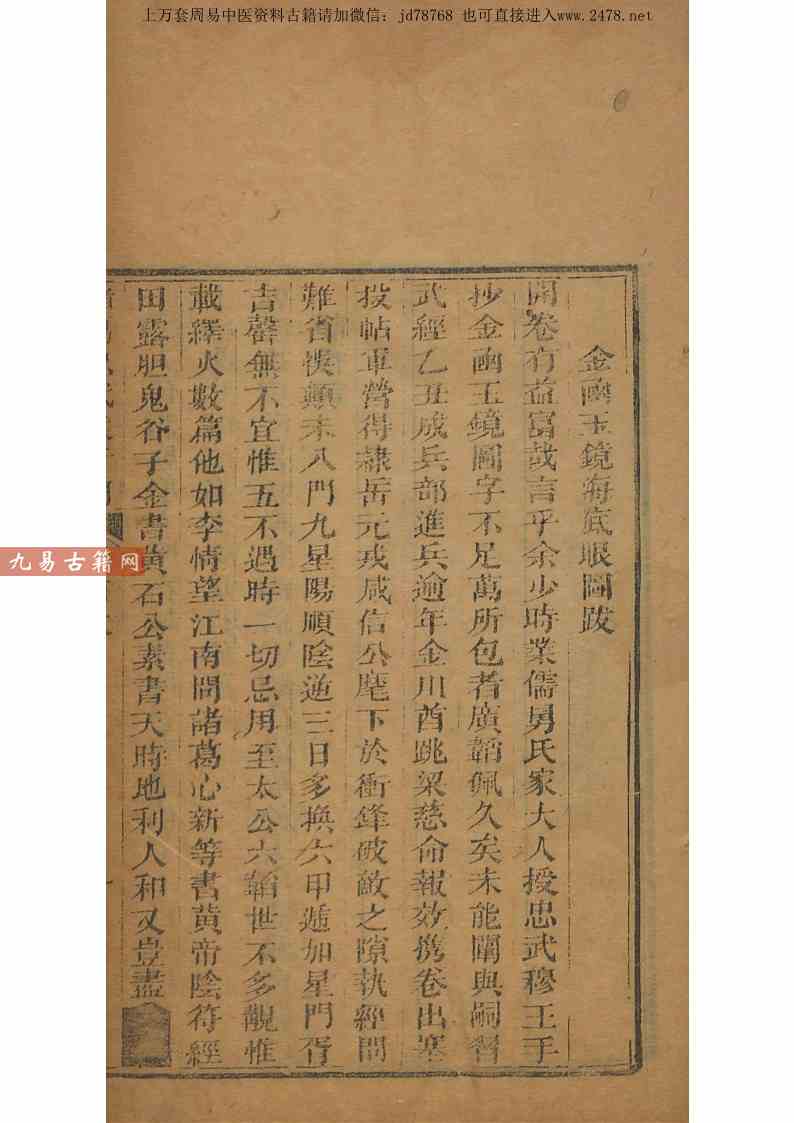 上万套周易中医资料古籍请加微信：jd78768 也可直接进入www.2478.net
金函玉鏡海底眼圖跋
開卷有益富哉言乎余少時業儒舅氏家大人授忠武穆王手
抄金函玉鏡圖字不足萬所包者廣韜佩久矣未能闡與嗣習
武經乙丑成兵部進兵逾年金川酋跳梁慈命報效携卷出塞
投帖軍營得隷岳元戎咸信公麾下於衝鋒破敵之隙執經問
難省悞顛末八門九星陽順陰逆三日多換六甲遁加星門胥
吉罄無不宜惟五不遇時一切忌用至太公六韜世不多覯惟
載繹火數篇他如李情望江南問諸葛心新等書黄帝陰符經
田露胆鬼谷子金書黄石公素書天時地利人和又豈盡
九易古籍网